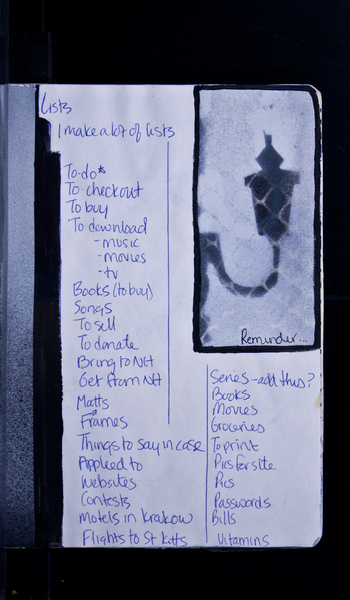 Lists
I make a lot of lists
To-do*
To checkout
To buy
To download
- music
- movies
- tv
Books (to buy)
Songs
To sell
To donate
Bring to NH
Get from NH
Matts
Frames
Things to say in case
Applied to
Websites
Contests
Motels in Krakow
Flights to St Kitts
Reminder...
Series - add this?
Books
Movies
Groceries
To print
Pics for site
Pics
Passwords
Bills
Vitamins